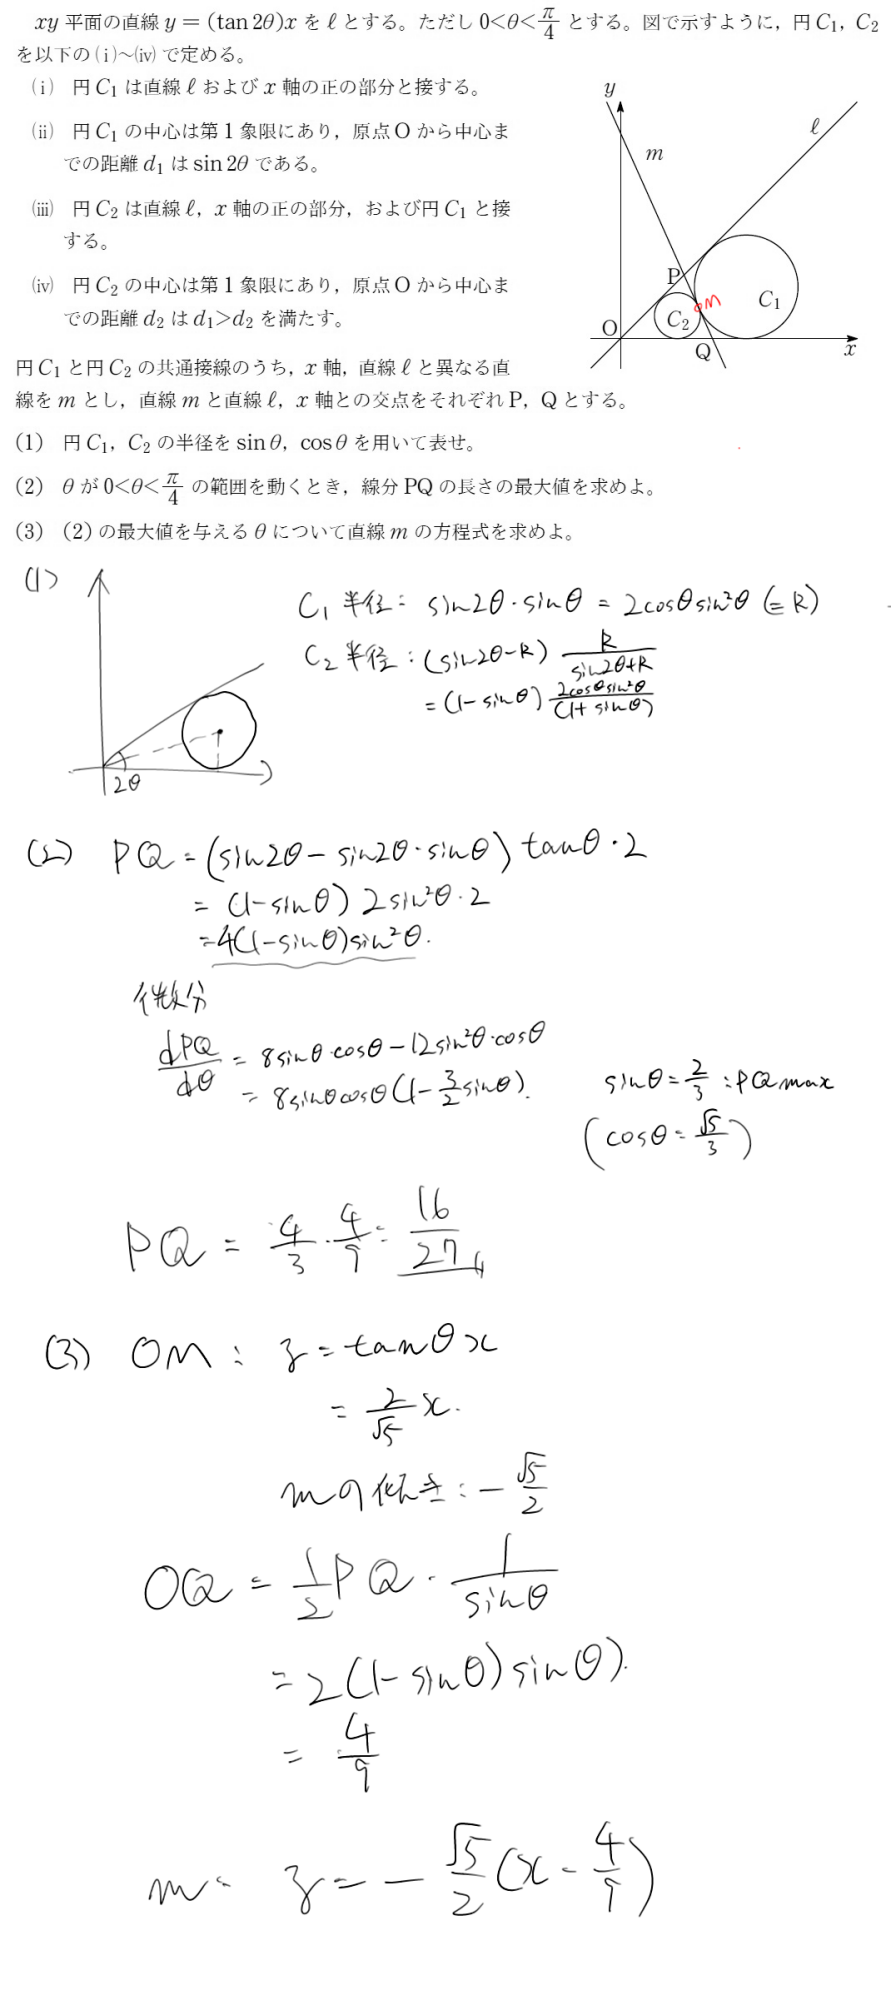 xy 平面の直線 y = (tan 2θ)x を ℓ とする。ただし 0<θ<π/4 とする。図で示すように，円 C₁，C₂
を以下の(ⅰ)～(ⅳ)で定める。
(ⅰ) 円 C₁ は直線 ℓ および x 軸の正の部分と接する。
(ⅱ) 円 C₁ の中心は第1象限にあり，原点 O から中心ま
での距離 d₁ は sin 2θ である。
(ⅲ) 円 C₂ は直線 ℓ，x 軸の正の部分，および円 C₁ と接
する。
(ⅳ) 円 C₂ の中心は第1象限にあり，原点 O から中心ま
での距離 d₂ は d₁>d₂ を満たす。
y
ℓ
m
P
M
C₁
C₂
O
Q
x
円 C₁ と円 C₂ の共通接線のうち，x 軸，直線 ℓ と異なる直
線を m とし，直線 m と直線 ℓ，x 軸との交点をそれぞれ P，Q とする。
(1) 円 C₁，C₂ の半径を sin θ，cos θ を用いて表せ。
(2) θ が 0<θ<π/4 の範囲を動くとき，線分 PQ の長さの最大値を求めよ。
(3) (2)の最大値を与える θ について直線 m の方程式を求めよ。
(1)
2θ
C₁ 半径: sin2θ・sinθ = 2cosθsin²θ (=R)
C₂ 半径: (sin2θ-R) R/(sin2θ+R)
= (1-sinθ) 2cosθsin²θ/(1+sinθ)
(2) PQ = (sin2θ - sin2θ・sinθ) tanθ・2
= (1-sinθ) 2sin²θ・2
= 4(1-sinθ)sin²θ.
微分
dPQ/dθ = 8sinθ・cosθ - 12sin²θ・cosθ
= 8sinθcosθ(1 - 3/2 sinθ).
sinθ = 2/3 : PQ max
(cosθ = √5/3)
PQ = 4/3・4/9 = 16/27
(3) OM : y = tanθ x
= 2/√5 x.
mの傾き: -√5/2
OQ = 1/2 PQ・1/sinθ
= 2(1-sinθ)sinθ).
= 4/9
m: y = -√5/2 (x - 4/9)